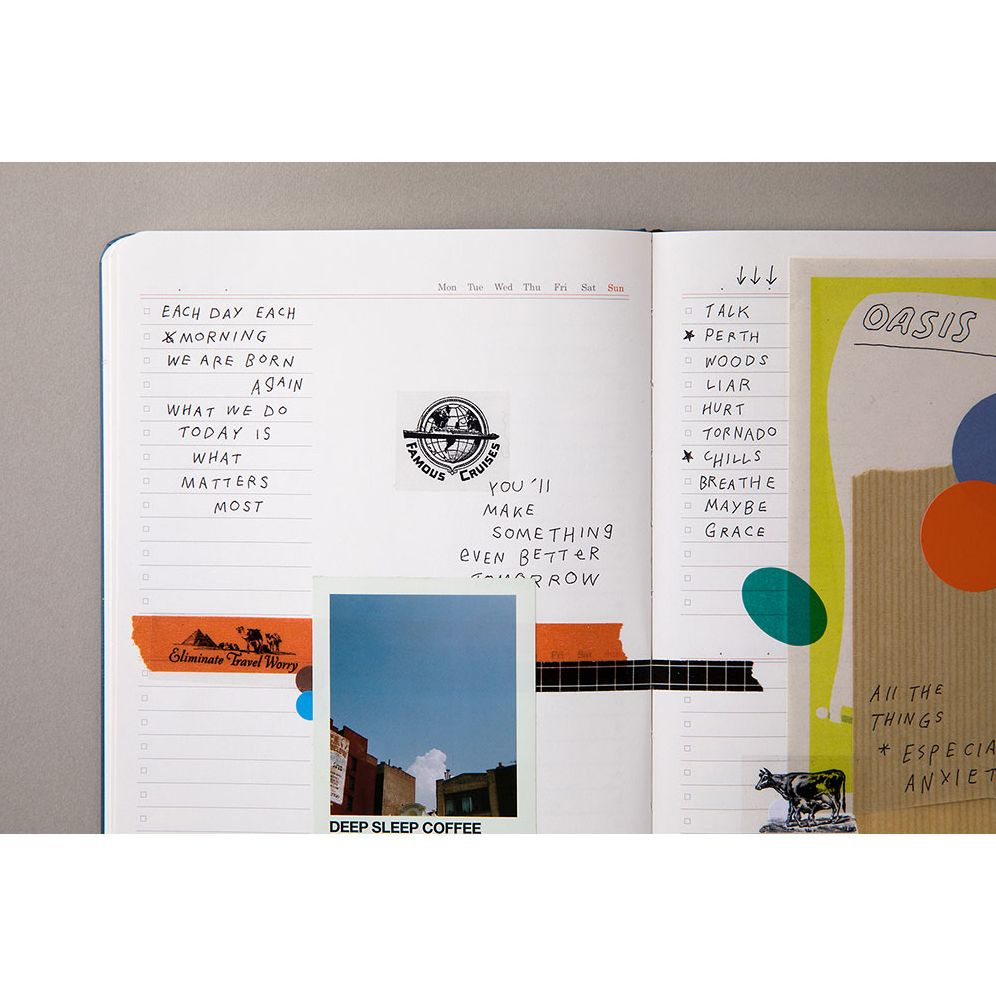 Mon Tue Wed Thu Fri Sat Sun
EACH DAY EACH
MORNING
WE ARE BORN
AGAIN
WHAT WE DO
TODAY IS
WHAT
MATTERS
MOST
FAMOUS CRUISES
YOU'll
MAKE
SOMETHING
EVEN BETTER
TOMORROW
Eliminate Travel Worry
Fri Sat
DEEP SLEEP COFFEE
TALK
PERTH
WOODS
LIAR
HURT
TORNADO
CHILLS
BREATHE
MAYBE
GRACE
OASIS
All THE
THINGS
* ESPECIA
ANXIET